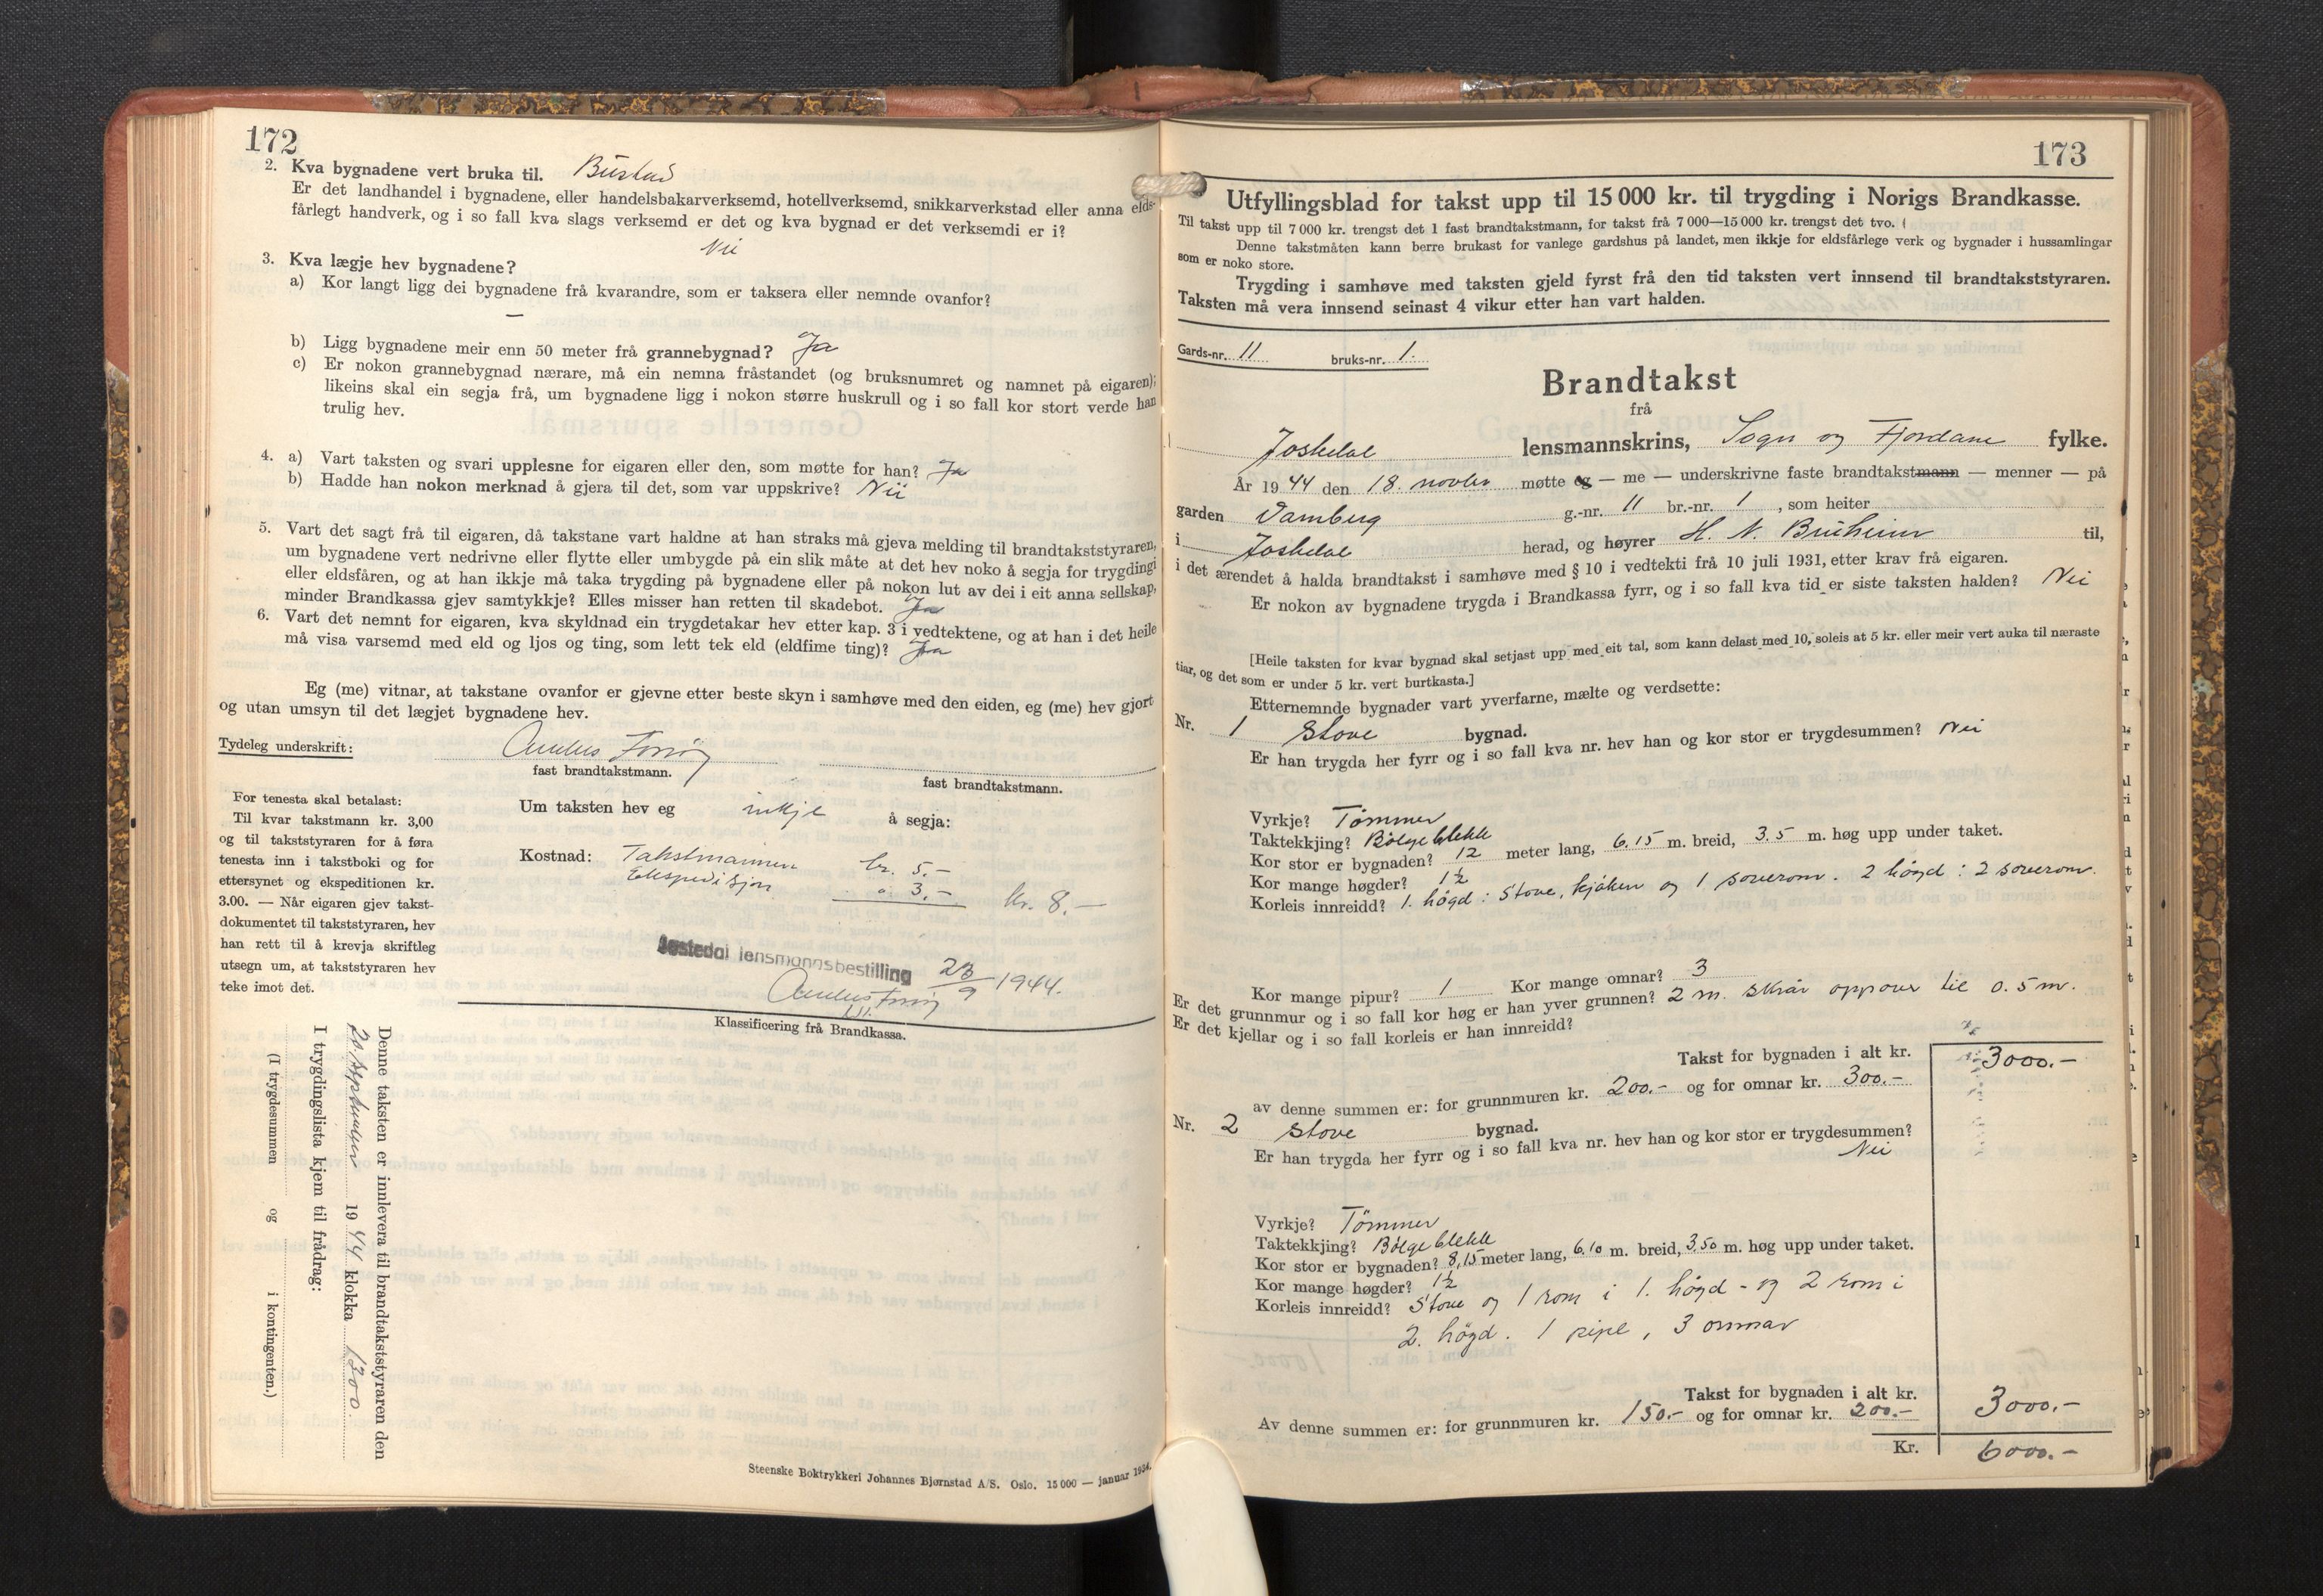 172
2. Kva bygnadene vert bruka til. Bustad
Er det landhandel i bygnadene, eller handelsbakarverksemd, hotellverksemd, snikkarverkstad eller anna elds-
fårlegt handverk, og i so fall kva slags verksemd er det og kva bygnad er det verksemdi er i?
Nei
3. Kva lægje hev bygnadene?
a) Kor langt ligg dei bygnadene frå kvarandre, som er taksera eller nemnde ovanfor?
—
b) Ligg bygnadene meir enn 50 meter frå grannebygnad? Ja
c) Er nokon grannebygnad nærare, må ein nemna fråstandet (og bruksnumret og namnet på eigaren);
likeins skal ein segja frå, um bygnadene ligg i nokon større huskrull og i so fall kor stort verde han
trulig hev.
4. a) Vart taksten og svari upplesne for eigaren eller den, som møtte for han? Ja
b) Hadde han nokon merknad å gjera til det, som var uppskrive? Nei
5. Vart det sagt frå til eigaren, då takstane vart haldne at han straks må gjeva melding til brandtakststyraren,
um bygnadene vert nedrivne eller flytte eller umbygde på ein slik måte at det hev noko å segja for trygdingi
eller eldsfåren, og at han ikkje må taka trygding på bygnadene eller på nokon lut av dei i eit anna sellskap,
minder Brandkassa gjev samtykkje? Elles misser han retten til skadebot. Ja
6. Vart det nemnt for eigaren, kva skyldnad ein trygdetakar hev etter kap. 3 i vedtektene, og at han i det heile
må visa varsemd med eld og ljos og ting, som lett tek eld (eldfime ting)? Ja
Eg (me) vitnar, at takstane ovanfor er gjevne etter beste skyn i samhøve med den eiden, eg (me) hev gjort
og utan umsyn til det lægjet bygnadene hev.
Tydeleg underskrift:
fast brandtakstmann.
fast brandtakstmann.
For tenesta skal betalast:
Til kvar takstmann kr. 3,00
og til takststyraren for å føra
tenesta inn i takstboki og for
ettersynet og ekspeditionen kr.
3.00. — Når eigaren gjev takst-
dokumentet til takststyraren, hev
han rett til å krevja skriftleg
utsegn um, at takststyraren hev
teke imot det.
Um taksten hev eg inkje å segja:
Kostnad: Takstmannen kr. 5.-
Ekspedisjon " 3.- kr. 8.-
Jostedal lensmannsbestilling 23/9 1944.
Klassificering frå Brandkassa.
Denne taksten er innlevera til brandtakststyraren den
20 september 1944 klokka 1300
I trygdingslista kjem til frådrag:
(I trygdesummen og i kontingenten.)
Steenske Boktrykkeri Johannes Bjørnstad A/S. Oslo. 15 000 — januar 1934.
173
Utfyllingsblad for takst upp til 15 000 kr. til trygding i Norigs Brandkasse.
Til takst upp til 7 000 kr. trengst det 1 fast brandtakstmann, for takst frå 7 000—15 000 kr. trengst det tvo.
Denne takstmåten kann berre brukast for vanlege gardshus på landet, men ikkje for eldsfårlege verk og bygnader i hussamlingar
som er noko store.
Trygding i samhøve med taksten gjeld fyrst frå den tid taksten vert innsend til brandtakststyraren.
Taksten må vera innsend seinast 4 vikur etter han vart halden.
Gards-nr. 11 bruks-nr. 1.
Brandtakst
frå
Jostedal lensmannskrins, Sogn og Fjordane fylke.
År 1944 den 18. novbr møtte eg — me — underskrivne faste brandtakstmann — menner — på
garden Vamberg g.-nr. 11 br.-nr. 1, som heiter
i Jostedal herad, og høyrer H. N. Bruheim til,
i det ærendet å halda brandtakst i samhøve med § 10 i vedtekti frå 10 juli 1931, etter krav frå eigaren.
Er nokon av bygnadene trygda i Brandkassa fyrr, og i so fall kva tid er siste taksten halden? Nei
[Heile taksten for kvar bygnad skal setjast upp med eit tal, som kann delast med 10, soleis at 5 kr. eller meir vert auka til næraste
tiar, og det som er under 5 kr. vert burtkasta.]
Etternemnde bygnader vart yverfarne, mælte og verdsette:
Nr. 1 Stove bygnad.
Er han trygda her fyrr og i so fall kva nr. hev han og kor stor er trygdesummen? Nei
Vyrkje? Tømmer
Taktekkjing? Bølgeblekk
Kor stor er bygnaden? 12 meter lang, 6.15 m. breid, 3.5 m. høg upp under taket.
Kor mange høgder? 1½
Korleis innreidd? 1. høgd: Stove, kjøken og 1 soverom. 2 høgd: 2 soverom.
Kor mange pipur? 1 Kor mange omnar? 3
Er det grunnmur og i so fall kor høg er han yver grunnen? 2 m. skrår oppover til 0.5 m.
Er det kjellar og i so fall korleis er han innreidd?
Takst for bygnaden i alt kr. 3000.-
av denne summen er: for grunnmuren kr. 200.- og for omnar kr. 300.-
Nr. 2 Stove bygnad.
Er han trygda her fyrr og i so fall kva nr. hev han og kor stor er trygdesummen?
Nei
Vyrkje? Tømmer
Taktekkjing? Bølgeblekk
Kor stor er bygnaden? 8,15 meter lang, 6.10 m. breid, 3.50 m. høg upp under taket.
Kor mange høgder? 1½
Korleis innreidd? Stove og 1 rom i 1. høgd - og 2 rom i
2. høgd. 1 pipe, 3 omnar
Takst for bygnaden i alt kr. 3000.-
Av denne summen er: for grunnmuren kr. 150.- og for omnar kr. 200.-
Kr. 6000.-